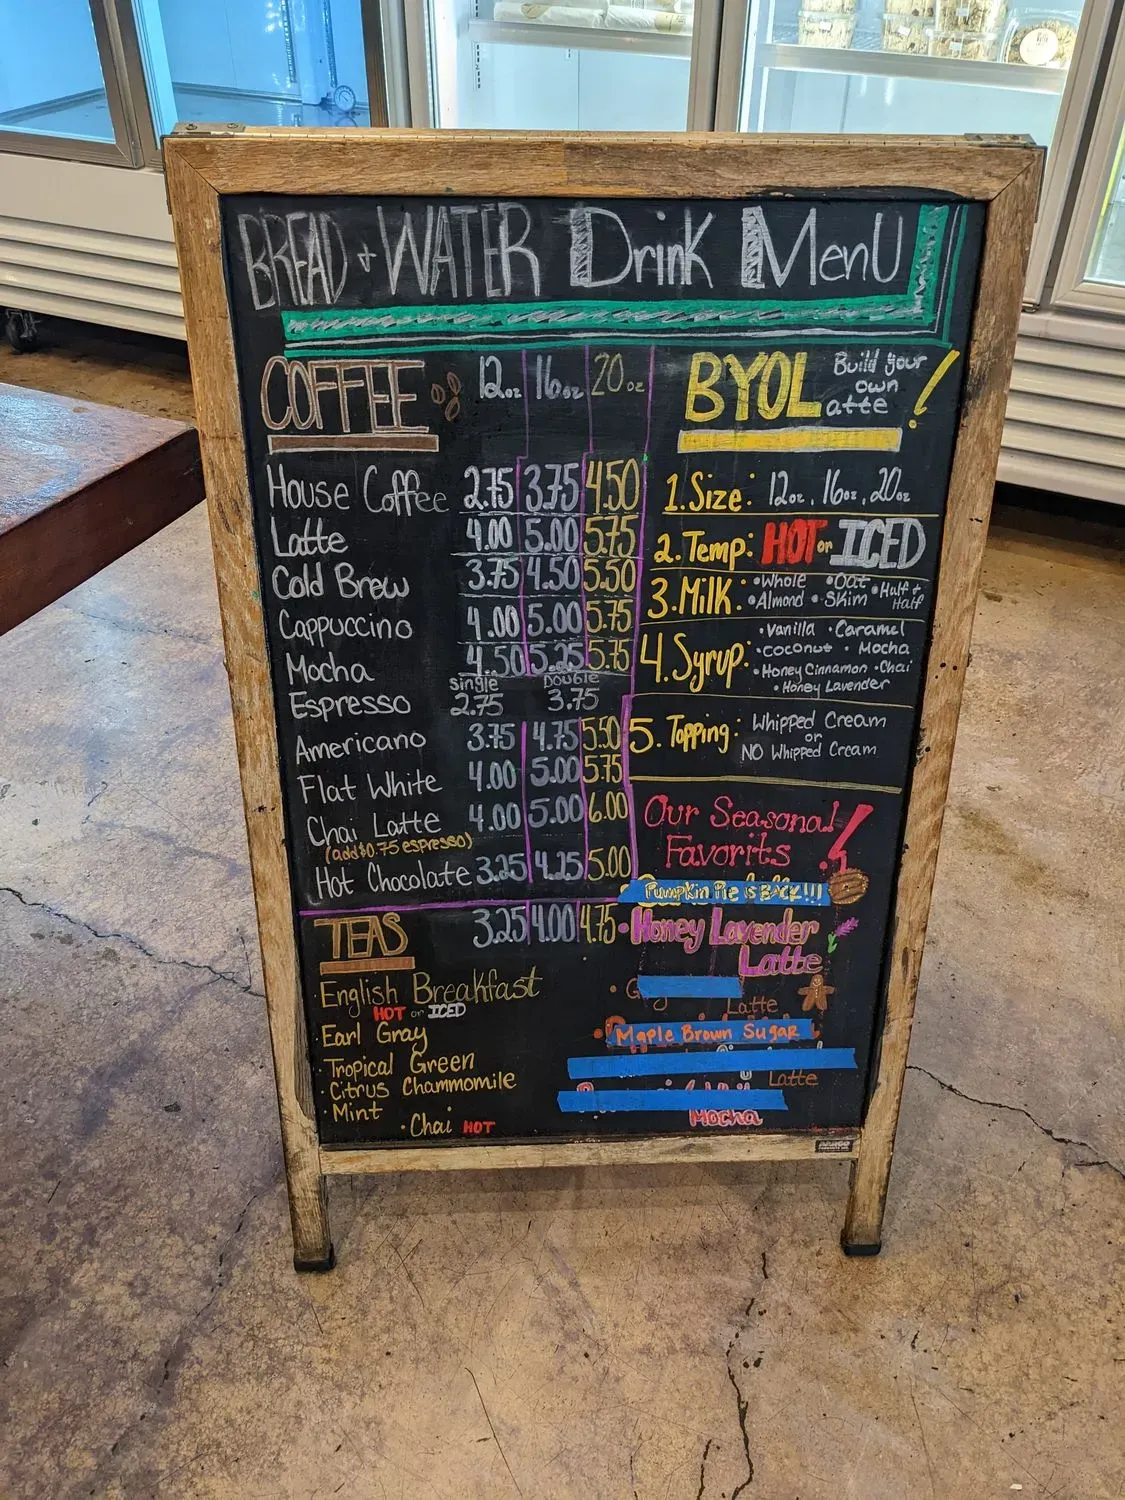 BREAD + WATER Drink MenU
COFFEE 12oz 16oz 20oz
House Coffee 2.75 3.75 4.50
Latte 4.00 5.00 5.75
Cold Brew 3.75 4.50 5.50
Cappuccino 4.00 5.00 5.75
Mocha 4.50 5.25 5.75
single Double
Espresso 2.75 3.75
Americano 3.75 4.75 5.50
Flat White 4.00 5.00 5.75
Chai Latte 4.00 5.00 6.00
(add $0.75 espresso)
Hot Chocolate 3.25 4.25 5.00
TEAS 3.25 4.00 4.75
English Breakfast
HOT or ICED
Earl Gray
Tropical Green
Citrus Chammomile
Mint
Chai HOT
BYOL Build your
own
Latte !
1. Size: 12oz, 16oz, 20oz
2. Temp: HOT or ICED
3. Milk: •Whole •Oat •Half +
•Almond •Skim Half
4. Syrup: •Vanilla •Caramel
•Coconut •Mocha
•Honey Cinnamon •Chai
•Honey Lavender
5. Topping: Whipped Cream
or
NO Whipped Cream
Our Seasonal
Favorits !
Pumpkin Pie is BACK!!!
•Honey Lavender
Latte
Latte
Maple Brown Sugar
Latte
Mocha